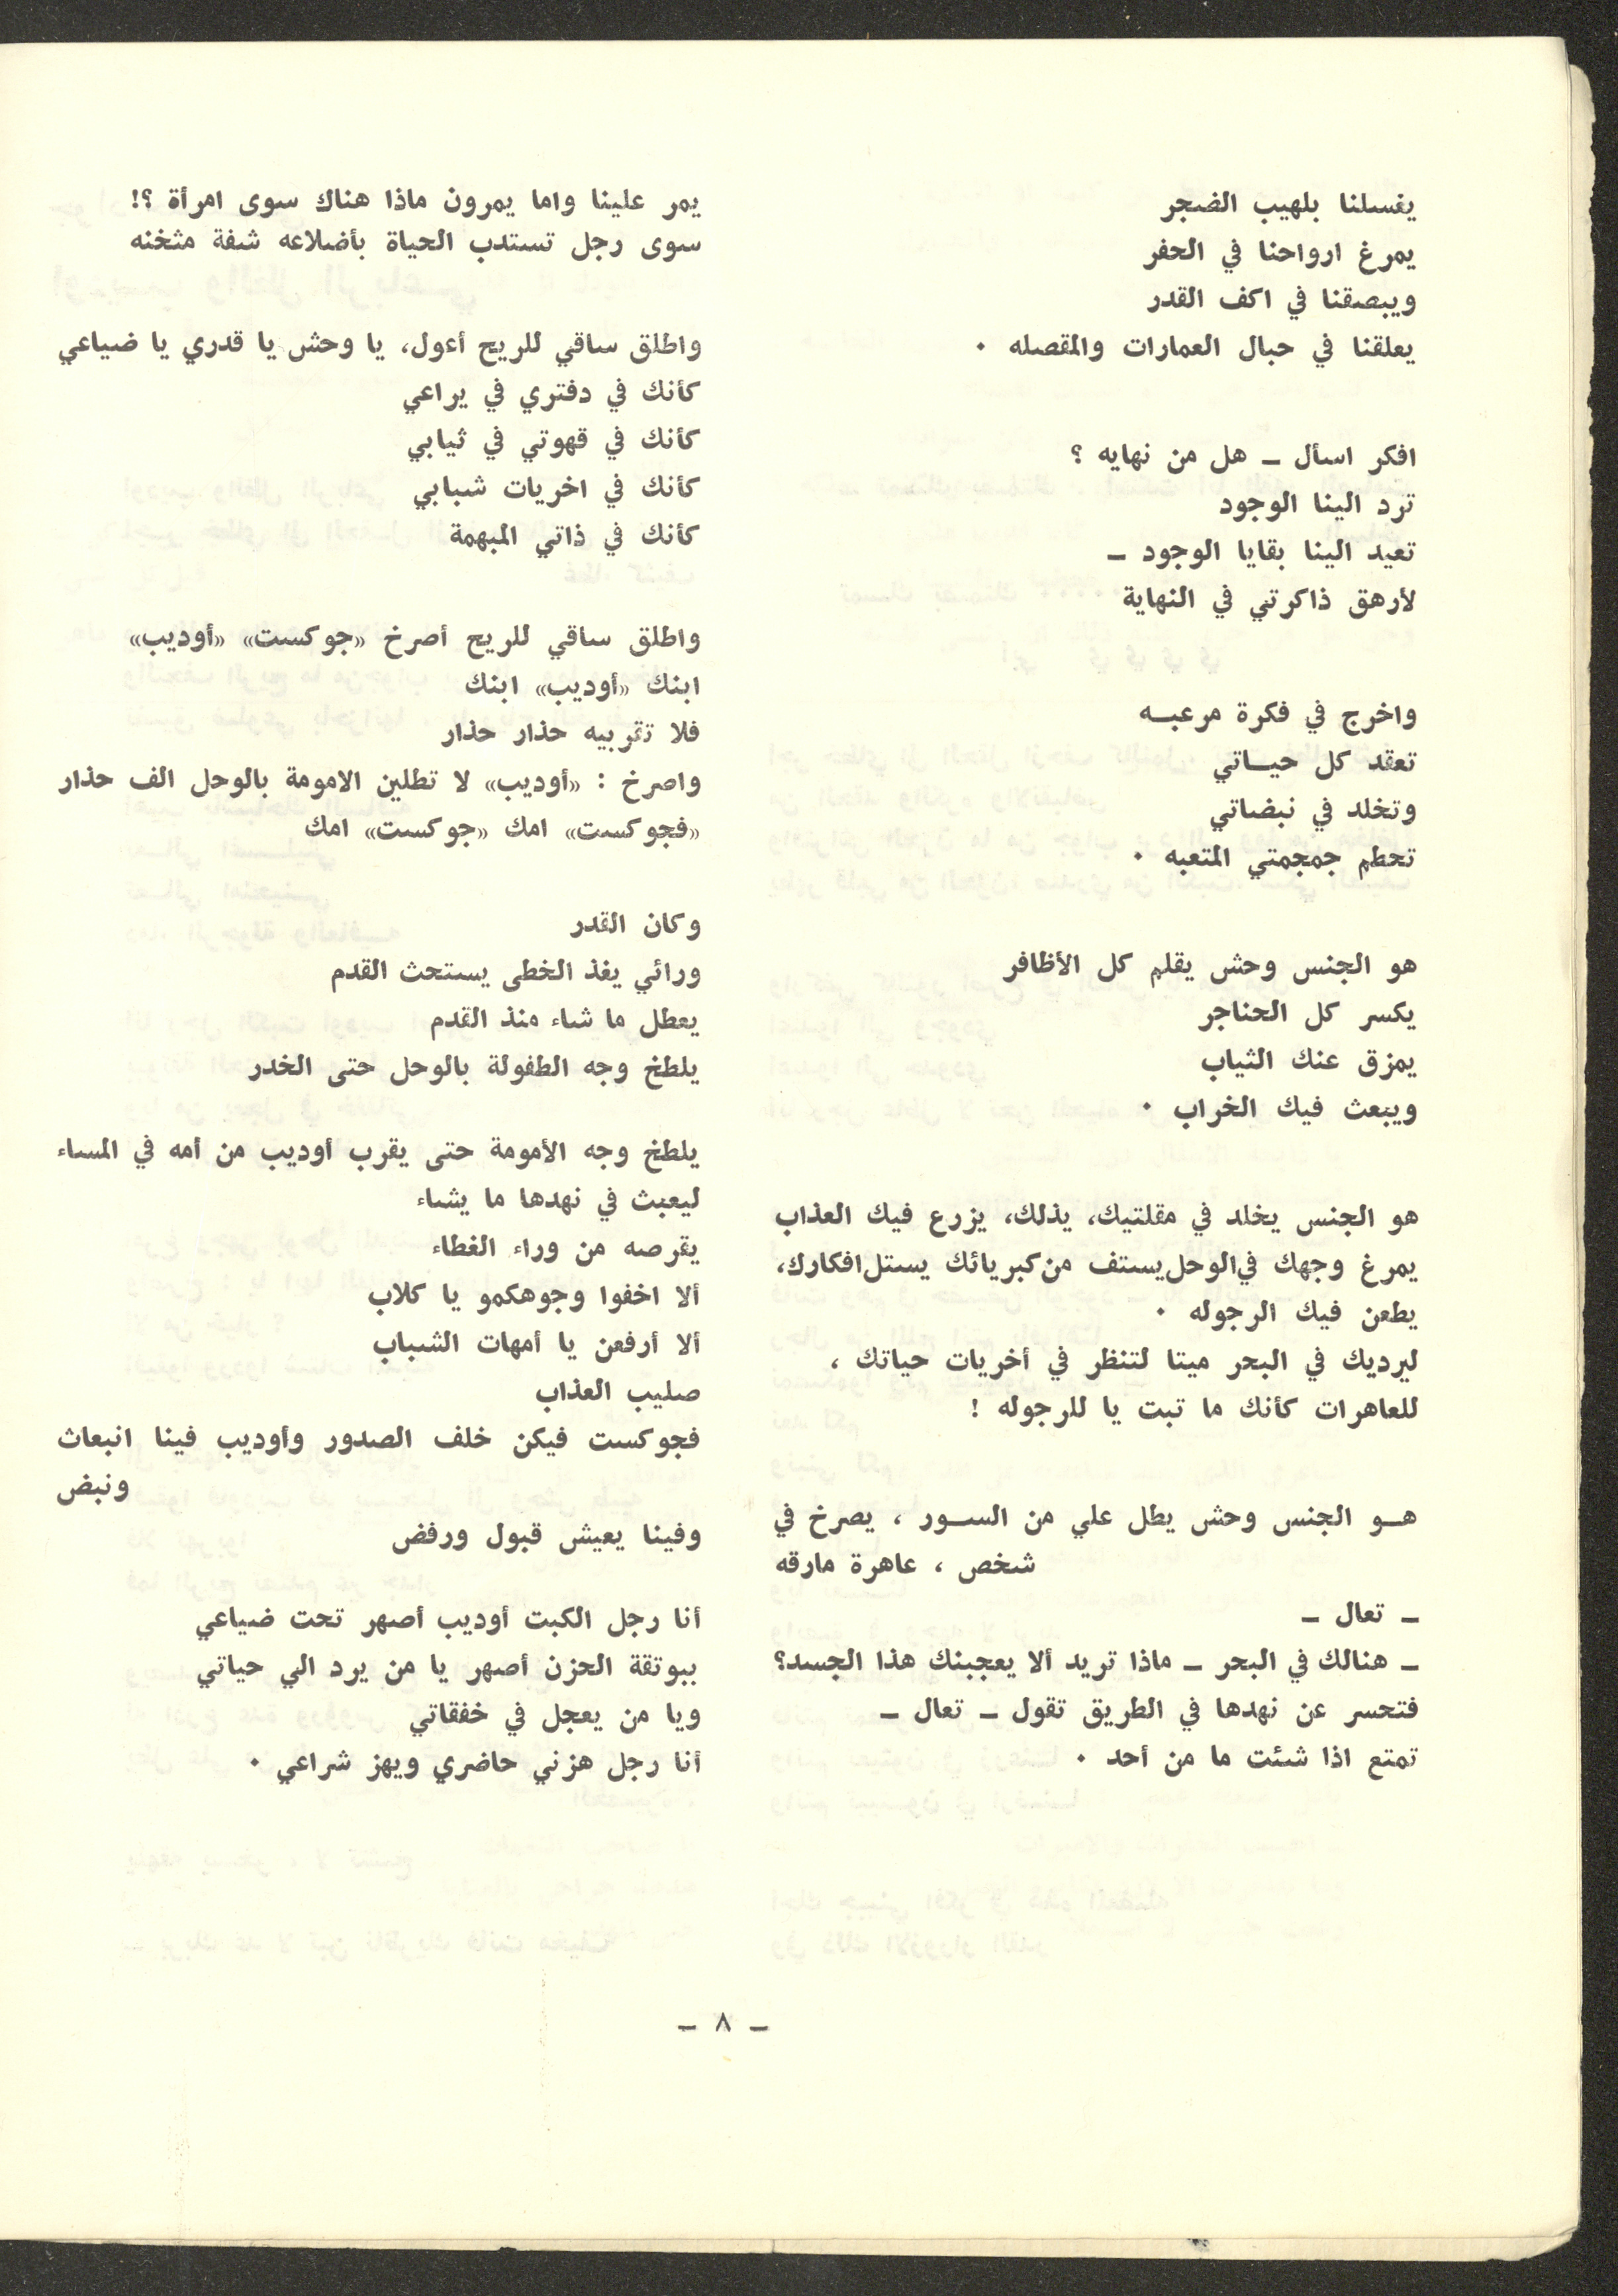 يغسلنا بلهيب الضجر
يمرغ ارواحنا في الحفر
ويبصقنا في اكف القدر
يعلقنا في حبال العمارات والمقصله ٠
افكر اسأل ــ هل من نهايه ؟
ترد الينا الوجود
تعيد الينا بقايا الوجود ــ
لأرهق ذاكرتي في النهاية
واخرج في فكرة مرعبــه
تعقد كل حيــاتي
وتخلد في نبضاتي
تحطم جمجمتي المتعبه ٠
هو الجنس وحش يقلم كل الأظافر
يكسر كل الحناجر
يمزق عنك الثياب
ويبعث فيك الخراب ٠
هو الجنس يخلد في مقلتيك، يذلك، يزرع فيك العذاب
يمرغ وجهك في الوحل يستف من كبريائك يستل افكارك،
يطعن فيك الرجوله ٠
ليرديك في البحر ميتا لتنظر في أخريات حياتك ،
للعاهرات كأنك ما تبت يا للرجوله !
هــو الجنس وحش يطل علي من الســور ، يصرخ في
شخص ، عاهرة مارقه
ــ تعال ــ
ــ هنالك في البحر ــ ماذا تريد ألا يعجبنك هذا الجسد؟
فتحسر عن نهدها في الطريق تقول ــ تعال ــ
تمتع اذا شئت ما من أحد ٠
يمر علينا واما يمرون ماذا هناك سوى امرأة ؟!
سوى رجل تستدب الحياة بأضلاعه شفة مثخنه
واطلق ساقي للريح أعول، يا وحش يا قدري يا ضياعي
كأنك في دفتري في يراعي
كأنك في قهوتي في ثيابي
كأنك في اخريات شبابي
كأنك في ذاتي المبهمة
واطلق ساقي للريح أصرخ «جوكست» «أوديب»
ابنك «أوديب» ابنك
فلا تقربيه حذار حذار
واصرخ : «أوديب» لا تطلين الامومة بالوحل الف حذار
«فجوكست» امك «جوكست» امك
وكان القدر
ورائي يغذ الخطى يستحث القدم
يعطل ما شاء منذ القدم
يلطخ وجه الطفولة بالوحل حتى الخدر
يلطخ وجه الأمومة حتى يقرب أوديب من أمه في المساء
ليعبث في نهدها ما يشاء
يقرصه من وراء الغطاء
ألا اخفوا وجوهكمو يا كلاب
ألا أرفعن يا أمهات الشباب
صليب العذاب
فجوكست فيكن خلف الصدور وأوديب فينا انبعاث
ونبض
وفينا يعيش قبول ورفض
أنا رجل الكبت أوديب أصهر تحت ضياعي
ببوتقة الحزن أصهر يا من يرد الي حياتي
ويا من يعجل في خفقاتي
أنا رجل هزني حاضري ويهز شراعي ٠
ــ ٨ ــ